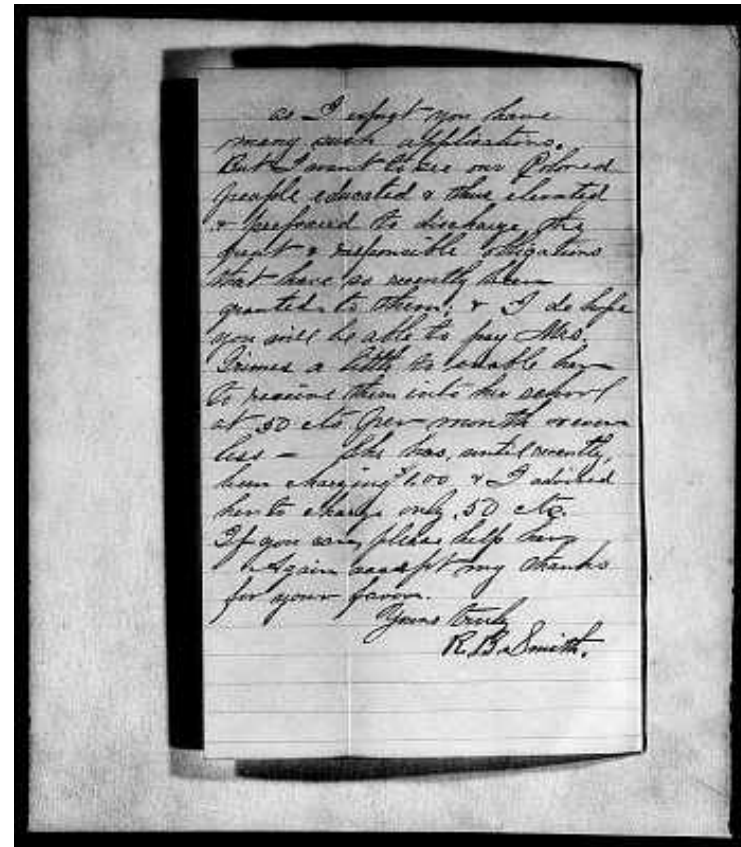 as I expect you have
many such applications.
But I want to see our Colored
people educated & thus elevated
& prepared to discharge the
great & responsible obligations
that have so recently been
granted to them; & I do hope
you will be able to pay Mrs.
Grimes a little to enable her
to receive them into her school
at 50 cts per month or even
less — She has, until recently,
been charging $1.00 & I advised
her to charge only .50 cts.
If you can, please help her,
Again accept my thanks
for your favor.
Yours truly
R. B. Smith.